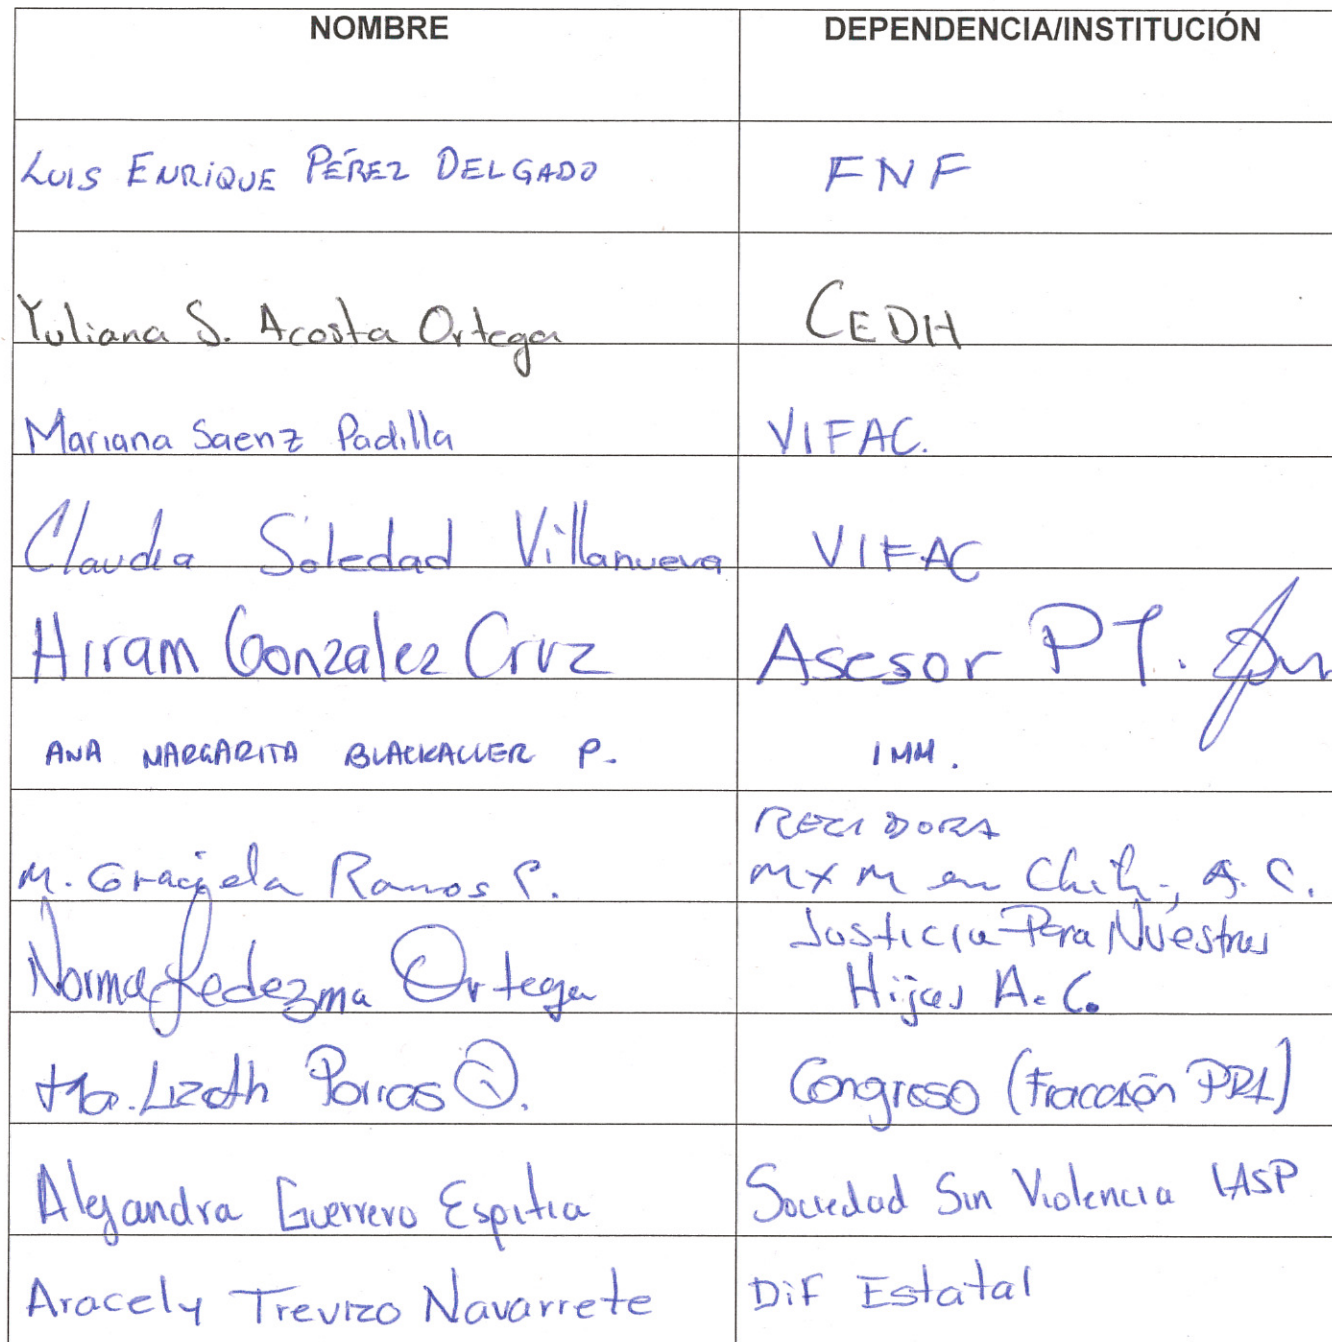 NOMBRE DEPENDENCIA/INSTITUCIÓN
LUIS ENRIQUE PÉREZ DELGADO FNF
Yuliana S. Acosta Ortega CEDH
Mariana Saenz Padilla VIFAC.
Claudia Soledad Villanueva VIFAC
Hiram Gonzalez Cruz Asesor PT.
ANA MARGARITA BLACKALLER P. IMM.
REGIDORA
M. Graciela Ramos P. MXM en Chih., A.C.
Justicia Para Nuestras
Norma Ledezma Ortega Hijas A.C.
Ma. Lizeth Porras Q. Congreso (Fracción PRI)
Alejandra Guerrero Espitia Sociedad Sin Violencia IASP
Aracely Trevizo Navarrete DiF Estatal